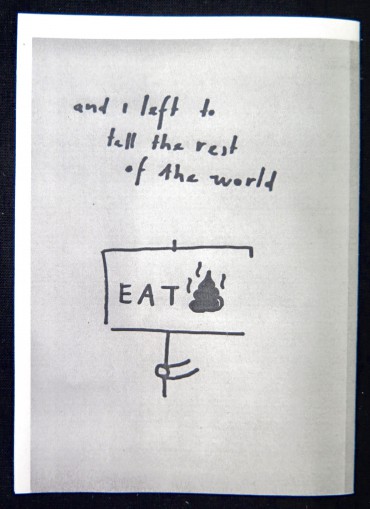 and i left to
tell the rest
of the world
EAT